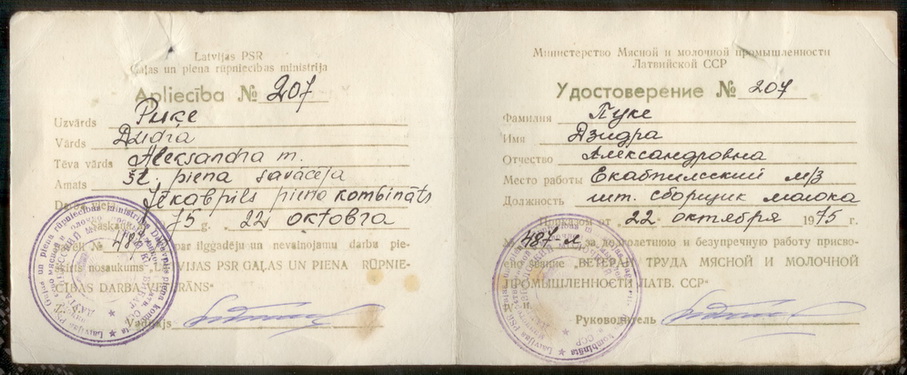 Latvijas PSR
Gaļas un piena rūpniecības ministrija
Apliecība № 207
Uzvārds Puķe
Vārds Dzidra
Tēva vārds Aleksandra m.
Amats št. piena savācēja
Jēkabpils piena kombināts
75 g. 22 oktobra
№ 487 par ilggadēju un nevainojamu darbu pie-
šķirts nosaukums "LATVIJAS PSR GAĻAS UN PIENA RŪPNIE-
CĪBAS DARBA VETERĀNS"
Vadītājs
Министерство Мясной и молочной промышленности
Латвийской ССР
Удостоверение № 207
Фамилия Пуке
Имя Дзидра
Отчество Александровна
Место работы Екабпилсский м/з
Должность шт. сборщик молока
Приказом от 22 октября 1975 г.
№ 487 за долголетнюю и безупречную работу присво-
ено звание "ВЕТЕРАН ТРУДА МЯСНОЙ И МОЛОЧНОЙ
ПРОМЫШЛЕННОСТИ ЛАТВ. ССР"
Руководитель